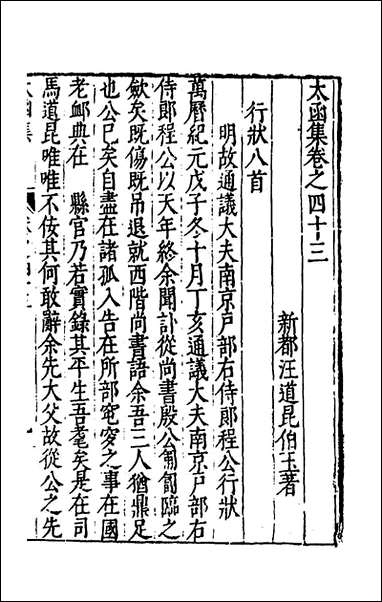 太函集卷之四十三
新都汪道昆伯玉著
行狀八首
明故通議大夫南京戶部右侍郎程公行狀
萬曆紀元戊子冬十月丁亥通議大夫南京戶部右
侍郎程公以天年終余聞訃從尚書殷公匍匐臨之
斂矣既傷既吊退就西階尚書語余吾三人猶鼎足
也公已矣自盡在諸孤入告在所部窀穸之事在國
老卹典在縣官乃若實錄其平生吾耄矣是在司
馬道昆唯唯不佞其何敢辭余先大父故從公之先
太函集